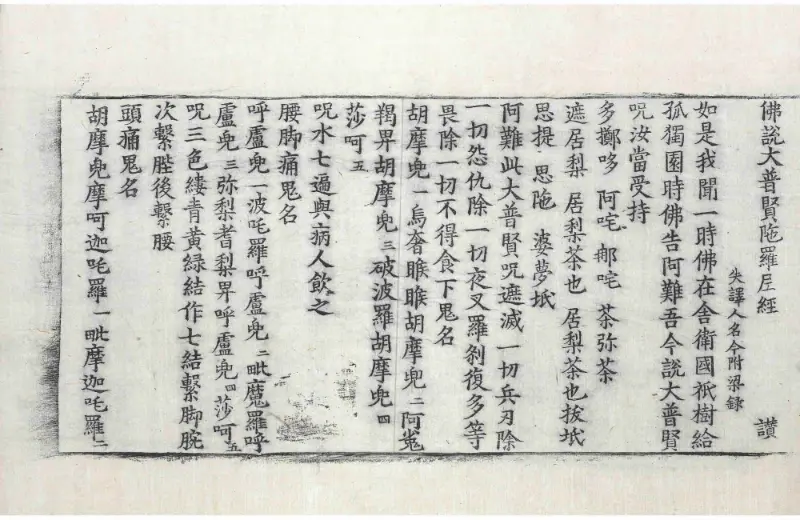 佛說大普賢陁羅尼經 讃
失譯人名今附梁錄
如是我聞一時佛在舍衛國祇樹給
孤獨園時佛告阿難吾今說大普賢
呪汝當受持
多擲哆 阿咤 那咤 荼弥荼
遮居梨 居梨荼也 居梨荼也拔坻
思提 思陁 婆夢坻
阿難此大普賢呪遮滅一切兵刃除
一切怨仇除一切夜叉羅剎復多等
畏除一切不得食下鬼名
胡摩兜一烏奢睺睺胡摩兜二阿㝹
羯畀胡摩兜三破波羅胡摩兜四
莎呵五
呪水七遍與病人飲之
腰脚痛鬼名
呼盧兜一波吒羅呼盧兜二毗魔羅呼
盧兜三弥梨耆梨畀呼盧兜四莎呵五
呪三色縷青黃綠結作七結繫脚腕
次繫䏶後繫腰
頭痛鬼名
胡摩兜摩呵迦吒羅一毗摩迦吒羅二